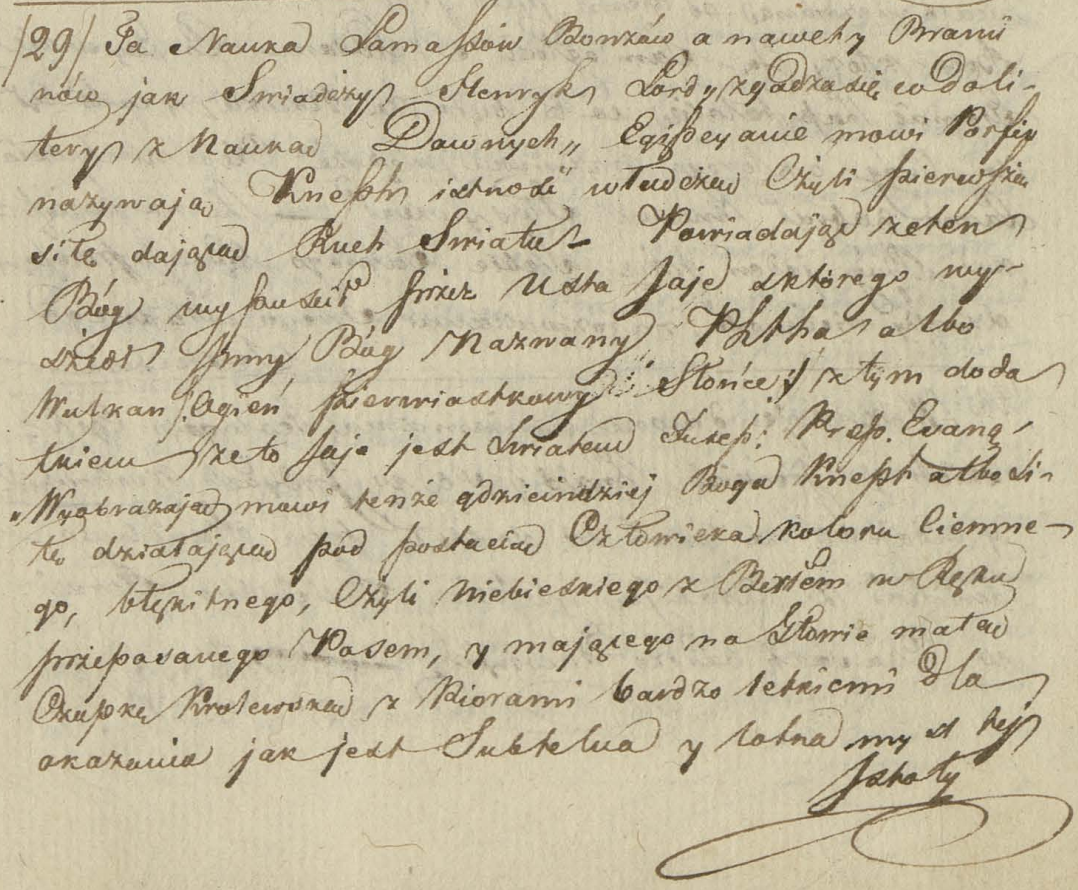 /29/ Ta Nauka Lamassów Bonzów a nawet y Brami
nów jak Swiadczy Henryk Lord, zgadza się co do li-
tery z Nauką Dawnych „ Egipcyanie mowi Porfir
nazywają Kneph istność władczą Czyli pierwszą
siłę dającą Ruch Swiatu – Powiadają ze ten
Bóg wypuscił przez Usta Jaje z którego wy-
szedł Jnny Bóg Nazwany Phtha albo
Wulkan /: Ogień pierwiastkowy Słońce :/ z tym doda
tkiem ze to Jaje jest Swiatem Euzeb: Prep. Evang.
„Wyobrażają mowi tenże gdzieindziej Boga Kneph albo Si-
łę działającą pod postacią Człowieka koloru Ciemne-
go, błękitnego, Czyli Niebieskiego z Berłem w Ręku
przepasanego Pasem, y mającego na Głowie małą
Czapkę Krolewską z Piorami bardzo letkiemi dla
okazania jak jest Subtelna y lotna myśl tej
Jstoty